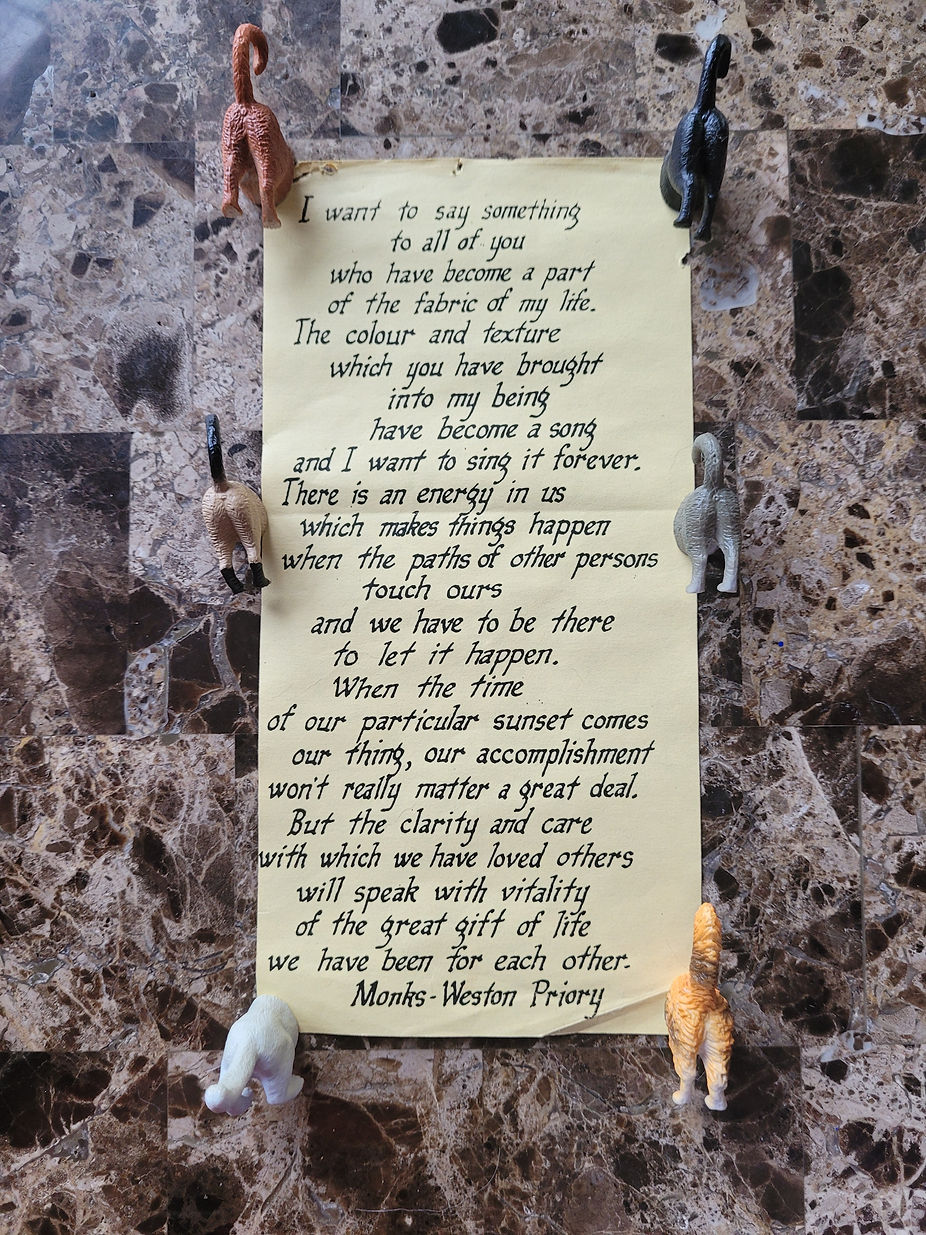 I want to say something
to all of you
who have become a part
of the fabric of my life.
The colour and texture
which you have brought
into my being
have become a song
and I want to sing it forever.
There is an energy in us
which makes things happen
when the paths of other persons
touch ours
and we have to be there
to let it happen.
When the time
of our particular sunset comes
our thing, our accomplishment
won't really matter a great deal.
But the clarity and care
with which we have loved others
will speak with vitality
of the great gift of life
we have been for each other.
Monks-Weston Priory